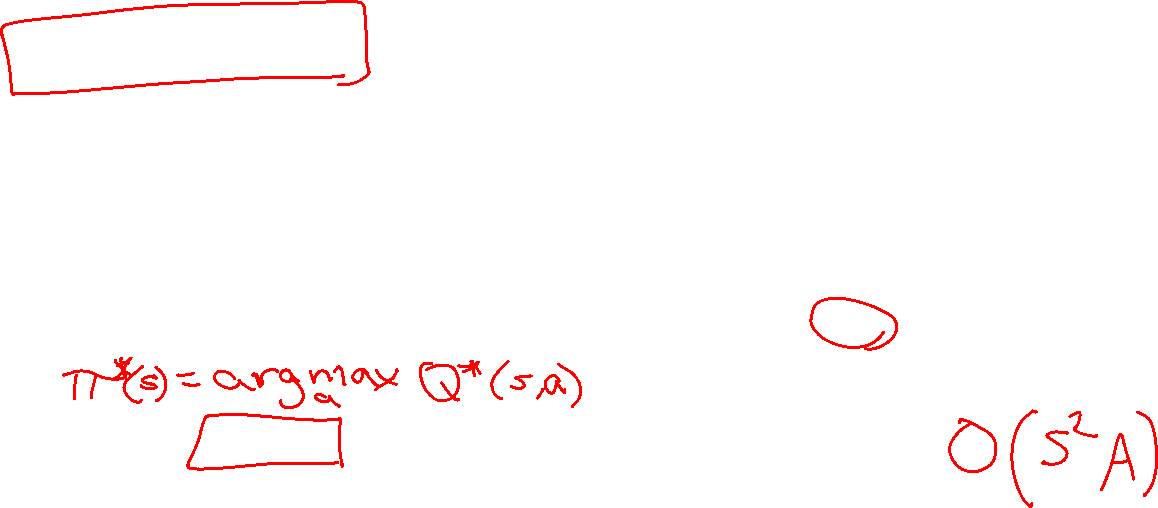 π*(s) = argmax_a Q*(s,a)
O(S²A)